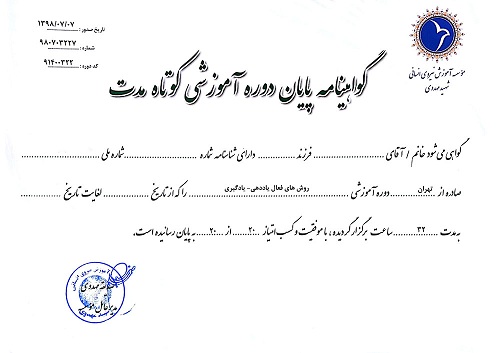 تاریخ صدور : ۱۳۹۸/۰۷/۰۷
شماره : ۹۸۰۷۰۳۲۲۷
کد دوره : ۹۱۴۰۰۳۲۲
مؤسسه آموزش نیروی انسانی
شهید مهدوی
گواهینامه پایان دوره آموزشی کوتاه مدت
گواهی می شود خانم / آقای .............................. فرزند .............. دارای شناسنامه شماره .............................. شماره ملی ..............................
صادره از ....تهران.... دوره آموزشی ....روش های فعال یاددهی- یادگیری.... را که از تاریخ .............. لغایت تاریخ ..............
به مدت ....۳۲.... ساعت برگزار گردیده ، با موفقیت و کسب امتیاز ....۲۰.... از ....۲۰.... به پایان رسانیده است.
مهدوی
مدیرعامل